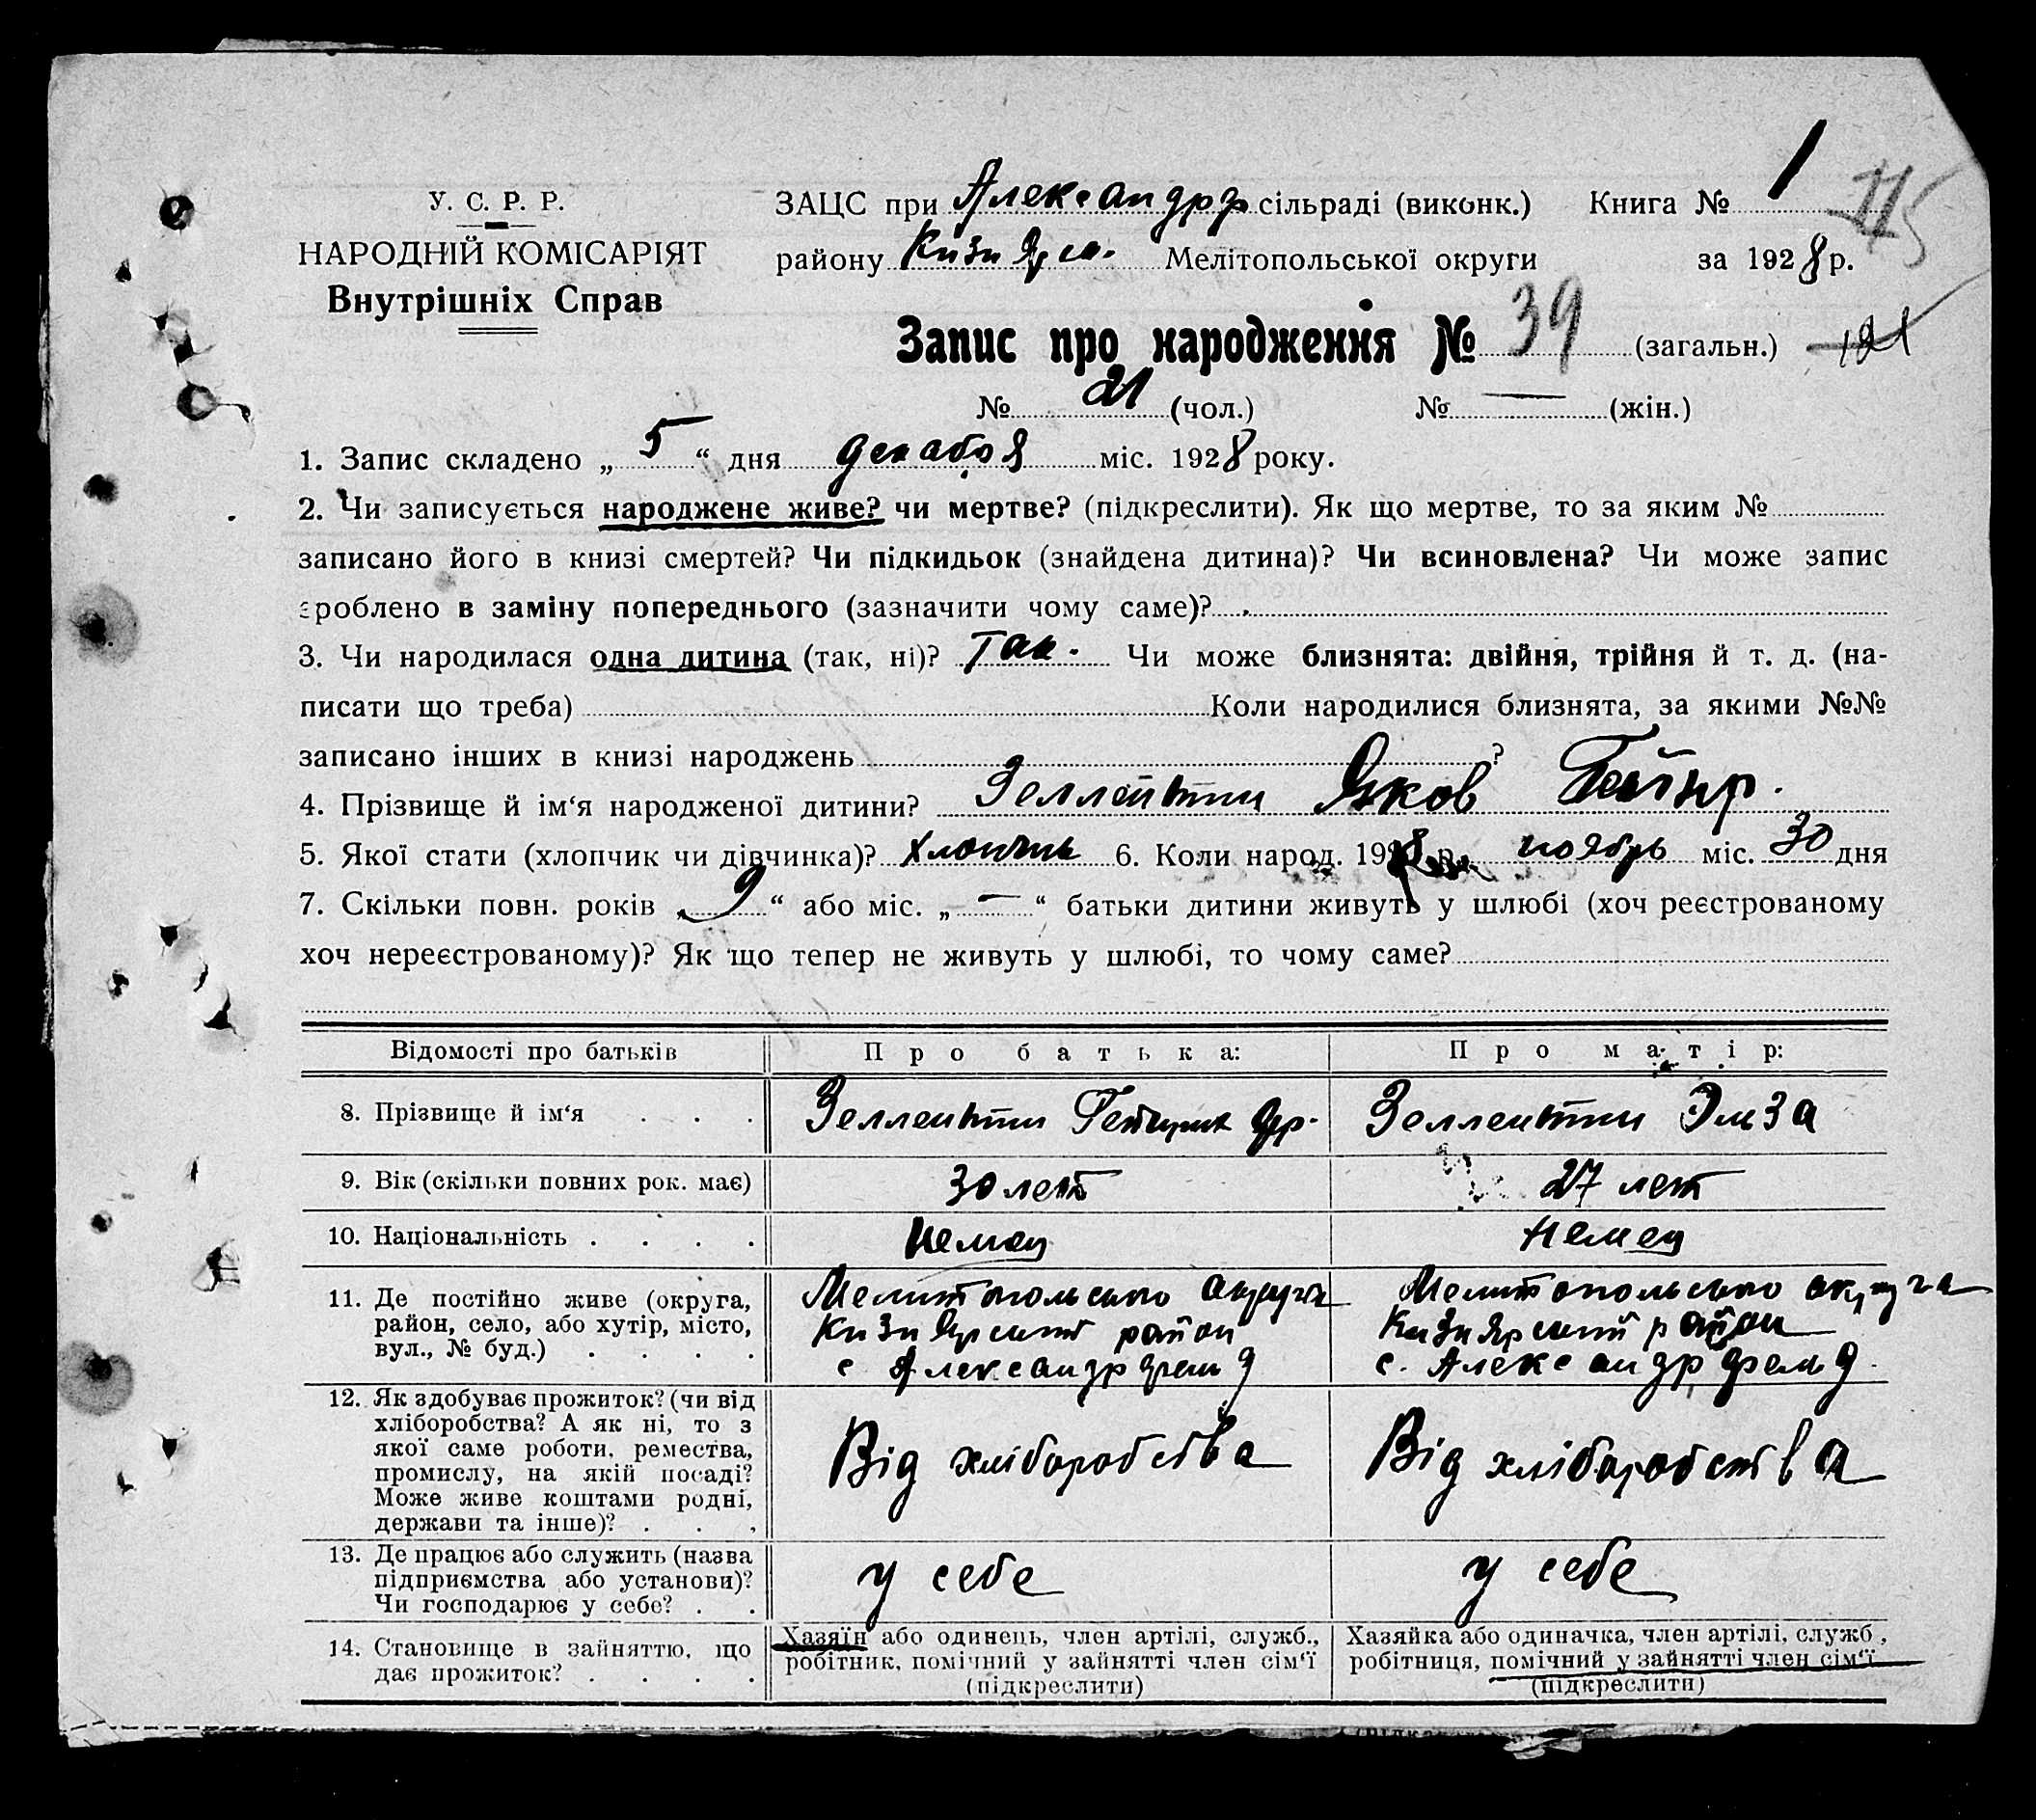 У. С. Р. Р.
НАРОДНІЙ КОМІСАРІЯТ
Внутрішніх Справ
ЗАЦС при Александрф сільраді (виконк.) Книга № 1
115
району Кизи Ярск. Мелітопольської округи за 1928 р.
Запис про народження № 39 (загальн.)
№ 21 (чол.) № — (жін.)
1. Запис складено „ 5 “ дня декабря міс. 1928 року.
2. Чи записується народжене живе? чи мертве? (підкреслити). Як що мертве, то за яким №
записано його в книзі смертей? Чи підкидьок (знайдена дитина)? Чи всиновлена? Чи може запис
зроблено в заміну попереднього (зазначити чому саме)?
3. Чи народилася одна дитина (так, ні)? Так. Чи може близнята: двійня, трійня й т. д. (на-
писати що треба) Коли народилися близнята, за якими №№
записано інших в книзі народжень ?
4. Прізвище й ім‘я народженої дитини? Зеллентин Яков
5. Якої стати (хлопчик чи дівчинка)? хлопчик 6. Коли народ. 1928 р. ноябрь міс. 30 дня
7. Скільки повн. років „ 9 “ або міс. „ — “ батьки дитини живуть у шлюбі (хоч реєстрованому
хоч нереєстрованому)? Як що тепер не живуть у шлюбі, то чому саме?
Відомості про батьків Про батька: Про матір:
8. Прізвище й ім‘я . . . Зеллентин Гейнрих Зеллентин Эльза
9. Вік (скільки повних рок. має) 30 лет 27 лет
10. Національність . . . . Немец Немец
11. Де постійно живе (округа,
район, село, або хутір, місто,
вул., № буд.) . . . .
Мелитопольского округа
Кизи Ярский район
с Александрфельд
Мелитопольского округа
Кизи Ярский район
с. Александрфельд.
12. Як здобуває прожиток? (чи від
хліборобства? А як ні, то з
якої саме роботи, ремества,
промислу, на якій посаді?
Може живе коштами родні,
держави та інше)? . . .
Від хліборобства Від хліборобства
13. Де працює або служить (назва
підприємства або установи)?
Чи господарює у себе? . .
у себе у себе
14. Становище в зайняттю, що
дає прожиток? . . . .
Хазяїн або одинець, член артілі, служб.,
робітник, помічний у зайнятті член сім‘ї
(підкреслити)
Хазяйка або одиначка, член артілі, служб.,
робітниця, помічний у зайнятті член сім‘ї
(підкреслити)